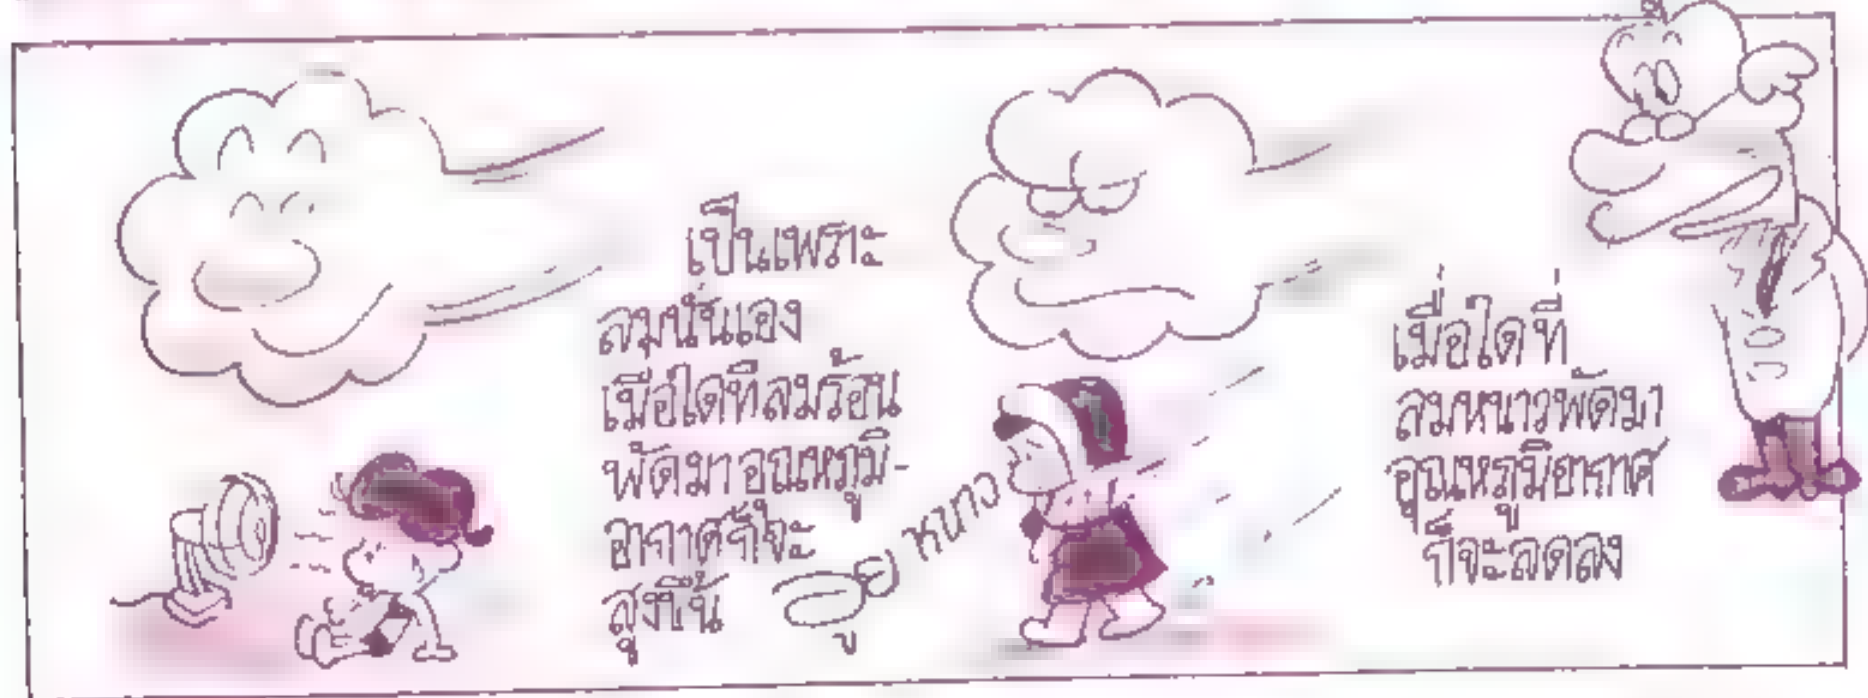 เป็นเพราะ
ลมนั่นเอง
เมื่อใดที่ลมร้อน
พัดมาอุณหภูมิ-
อากาศก็จะ
สูงขึ้น
หนาว
เมื่อใดที่
ลมหนาวพัดมา
อุณหภูมิอากาศ
ก็จะลดลง